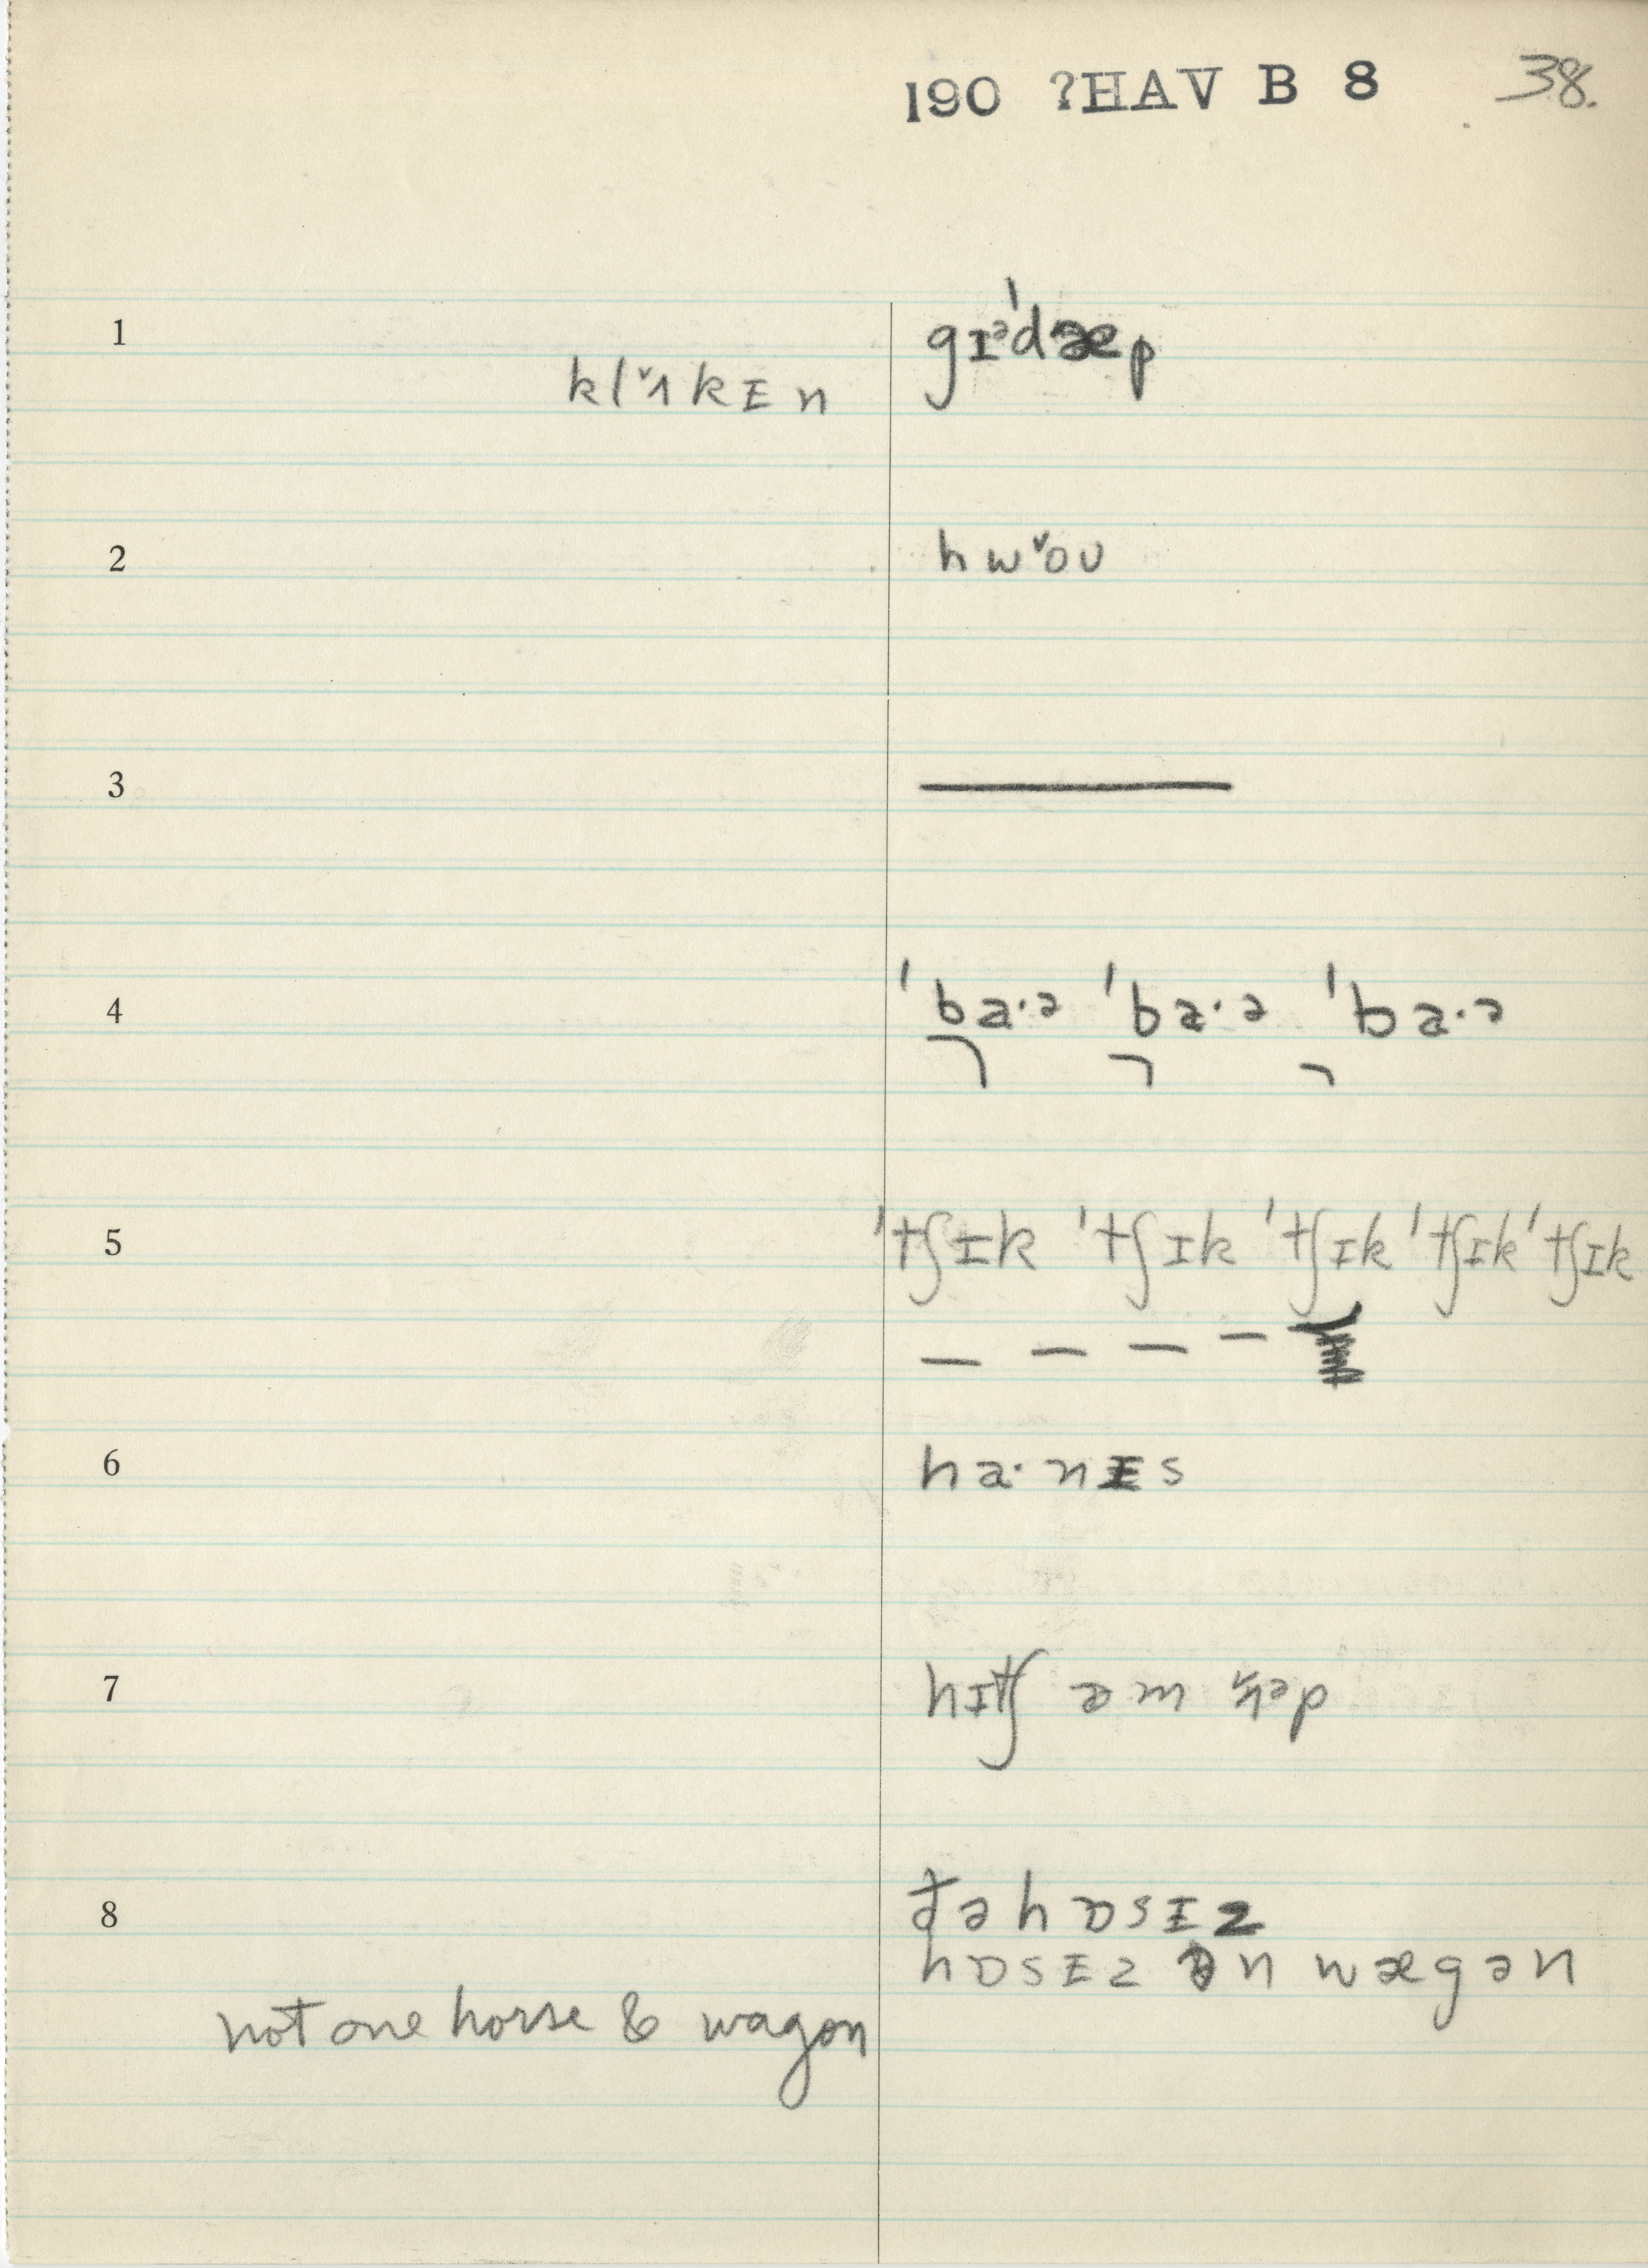 190 ?HAV B 8 38.
1 gɪᵊˈdæp
klˇʌkɪn
2 hwˇoʊ
3
4 ˈba·ə ˈba·ə ˈba·ə
5 ˈtʃɪk ˈtʃɪk ˈtʃɪk ˈtʃɪk ˈtʃɪk
6 ha·nɪs
7 hɪtʃ əm
8 ðə hɒsɪz
hɒsɪz ən wægən
not one horse & wagon